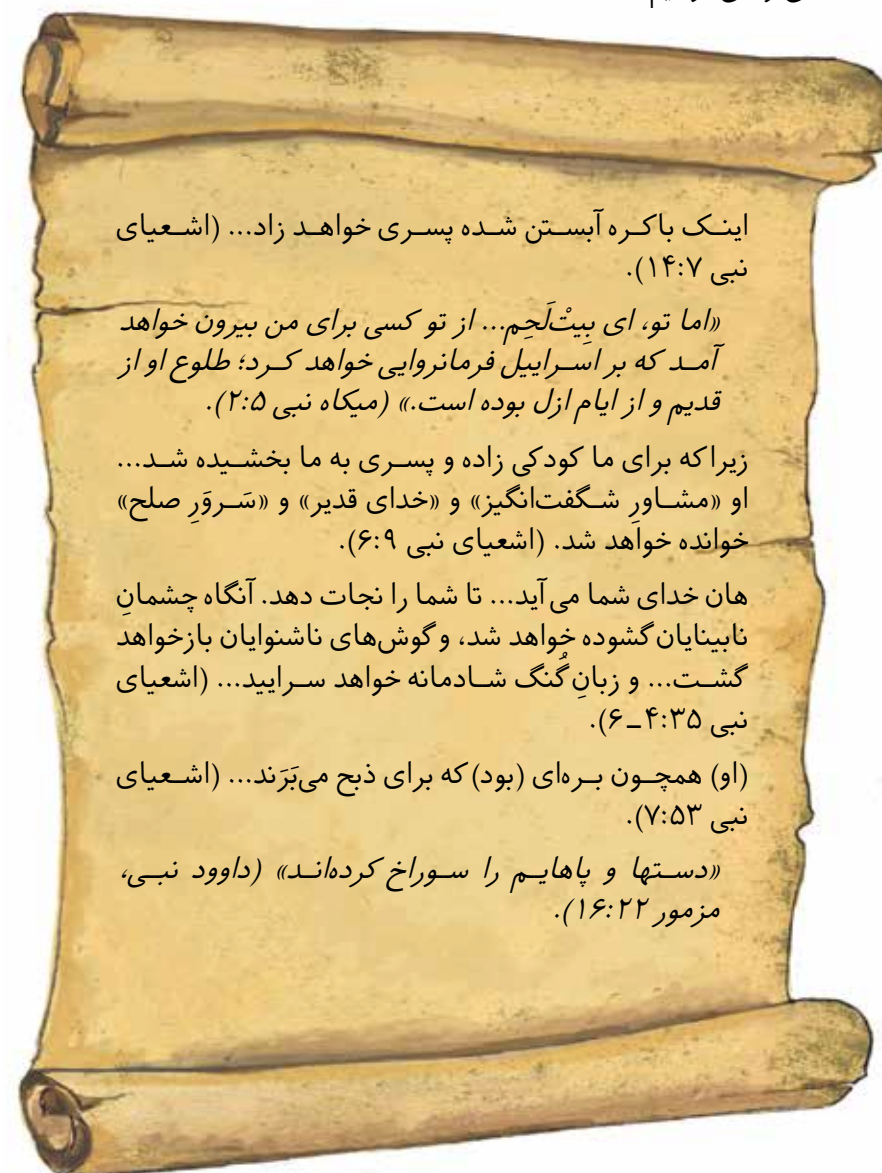 اینک باکره آبستن شده پسری خواهد زاد... (اشعیای
نبی ۱۴:۷).
«اما تو، ای بِیتْ‌لَحِم... از تو کسی برای من بیرون خواهد
آمد که بر اسراییل فرمانروایی خواهد کرد؛ طلوع او از
قدیم و از ایام ازل بوده است.» (میکاه نبی ۲:۵).
زیراکه برای ما کودکی زاده و پسری به ما بخشیده شد...
او «مشاورِ شگفت‌انگیز» و «خدای قدیر» و «سَروَرِ صلح»
خوانده خواهد شد. (اشعیای نبی ۶:۹).
هان خدای شما می‌آید... تا شما را نجات دهد. آنگاه چشمانِ
نابینایان گشوده خواهد شد، و گوش‌های ناشنوایان بازخواهد
گشت... و زبانِ گُنگ شادمانه خواهد سرایید... (اشعیای
نبی ۴:۳۵ـ۶).
(او) همچون بره‌ای (بود) که برای ذبح می‌بَرَند... (اشعیای
نبی ۷:۵۳).
«دستها و پاهایم را سوراخ کرده‌اند» (داوود نبی،
مزمور ۱۶:۲۲).